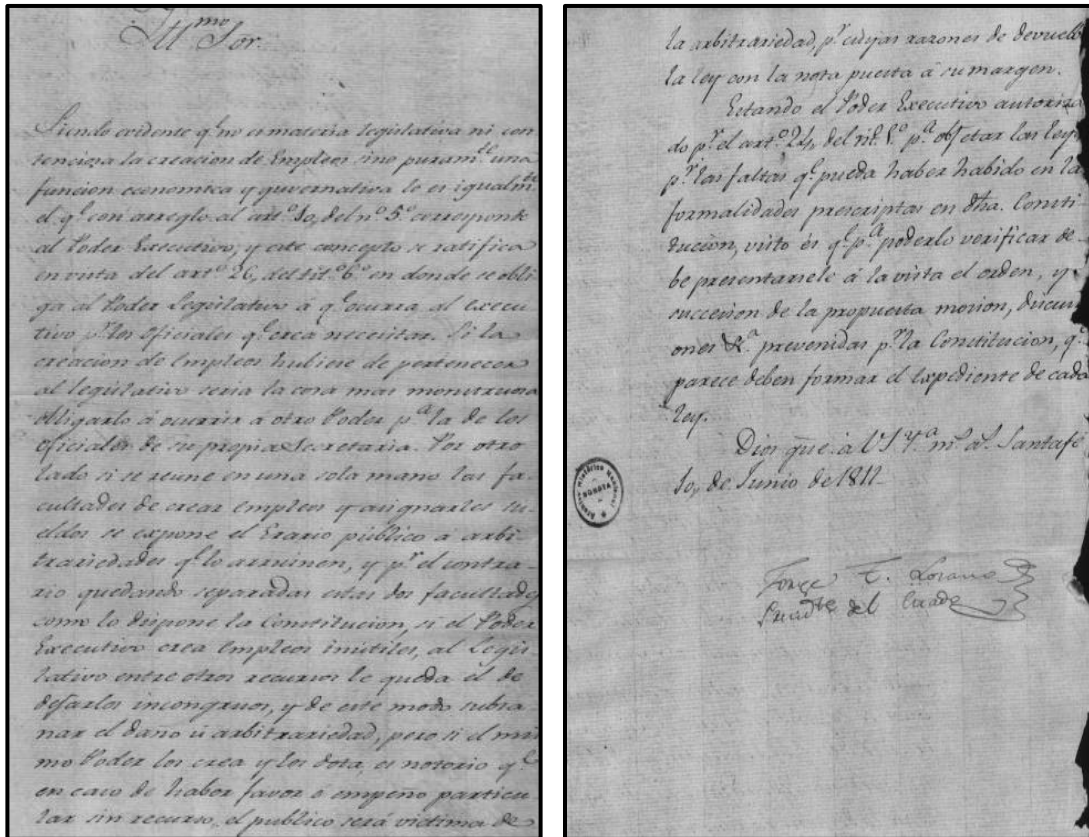 Illmo Sor.
Siendo evidente qe no es materia legislativa ni con
tenciosa la creacion de Empleos sino puramte una
funcion economica y guvernativa lo es igualmte
el qe con arreglo al arto 10, del no 5o corresponde
al Poder Executivo, y este concepto se ratifica
en vista del arto 26, del tito 6o en donde se obli
ga al Poder Legislativo á qe ocurra al execu
tivo pr los Oficiales qe crea necesitar. Si la
creacion de Empleos hubiese de pertenecer
al legislativo seria la cosa mas monstruosa
obligarlo á ocurrir á otro Poder pa la de los
oficiales de su propia Secretaria. Por otro
lado si se reune en una sola mano las fa
cultades de crear empleos y asignarles su
eldos se expone el Erario público á arbi
trariedades qe lo arruinen, y pr el contra
rio quedando separadas estas dos facultades
como lo dispone la Constitucion, si el Poder
Executivo crea empleos inutiles, al Legis
lativo entre otros recursos le queda el de
dejarlos incongruos, y de este modo subsa
nar el daño ú arbitrariedad, pero si el mis
mo Poder los crea y los dota, es notorio qe
en caso de haber favor ó empeño particu
lar sin recurso, el publico será victima de
la arbitrariedad, pr cuyas razones de devuelve
la ley con la nota puesta á su margen.
Estando el Poder Executivo autoriza
do pr el arto 24, del tit. 5o pa objetar las leyes
pr las faltas qe pueda haber habido en la
formalidades prescriptas en dha. Consti
tucion, visto es qe pa poderlo verificar de
be presentarsele á la vista el orden, y
succesion de la propuesta mosion, discusi
ones &a. prevenidas pr la Constitucion, qe
parece deben formar el expediente de cada
ley.
Dios gue. á VS Ya ms as. Santafé
10, de Junio de 1811.
BOGOTA
Jorge T. Lozano
Presidte del Estado